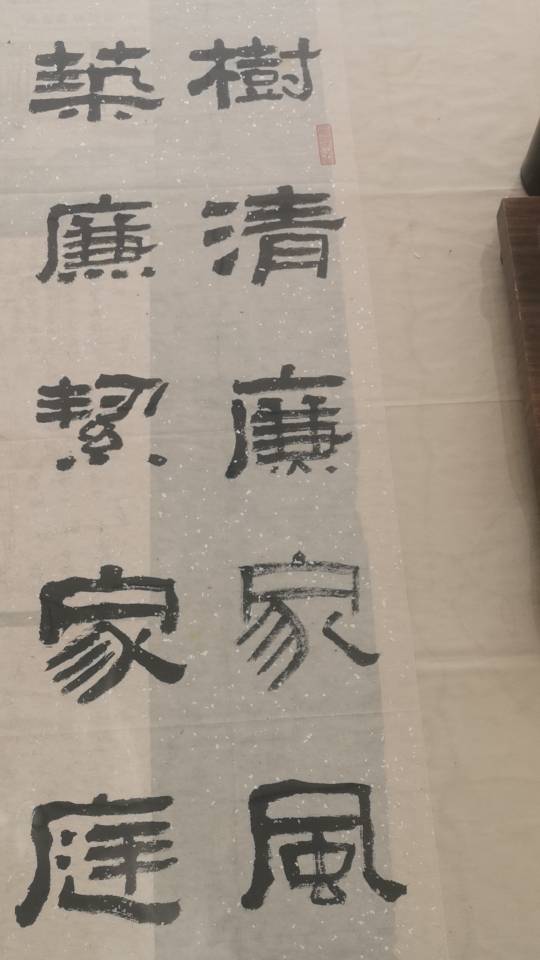 樹清廉家風
築廉絜家庭